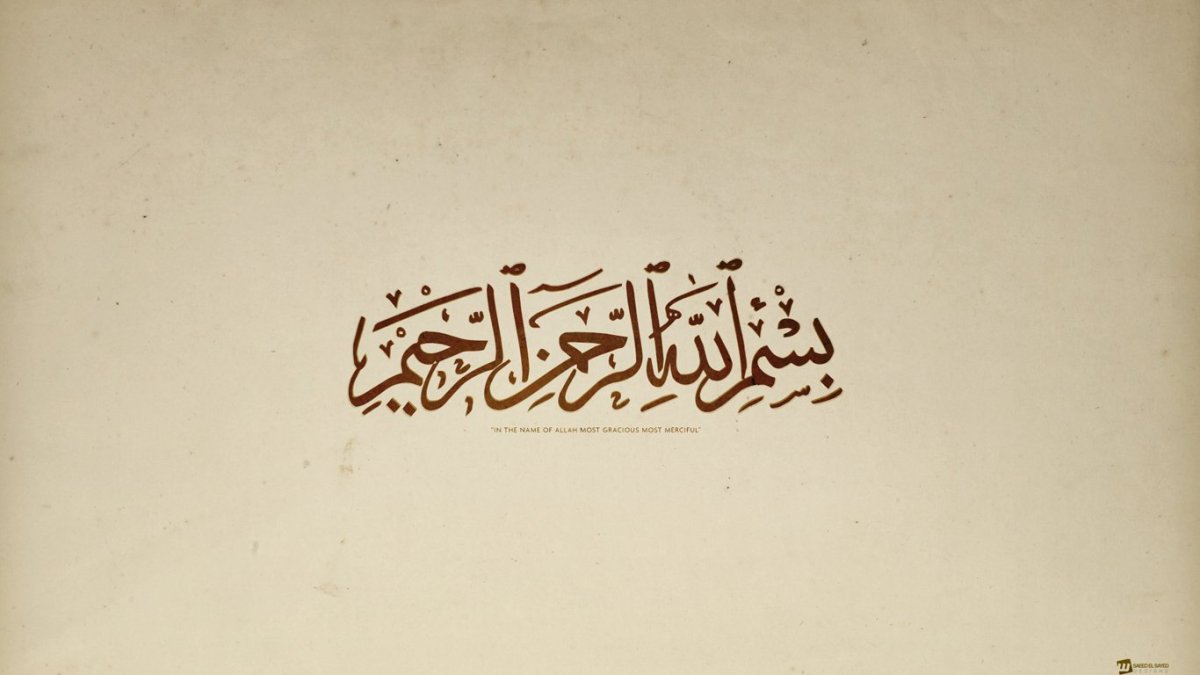 بِسْمِ ٱللَّهِ ٱلرَّحْمَٰنِ ٱلرَّحِيمِ
"IN THE NAME OF ALLAH MOST GRACIOUS MOST MERCIFUL"
SAEED EL SAYED
DESIGNS